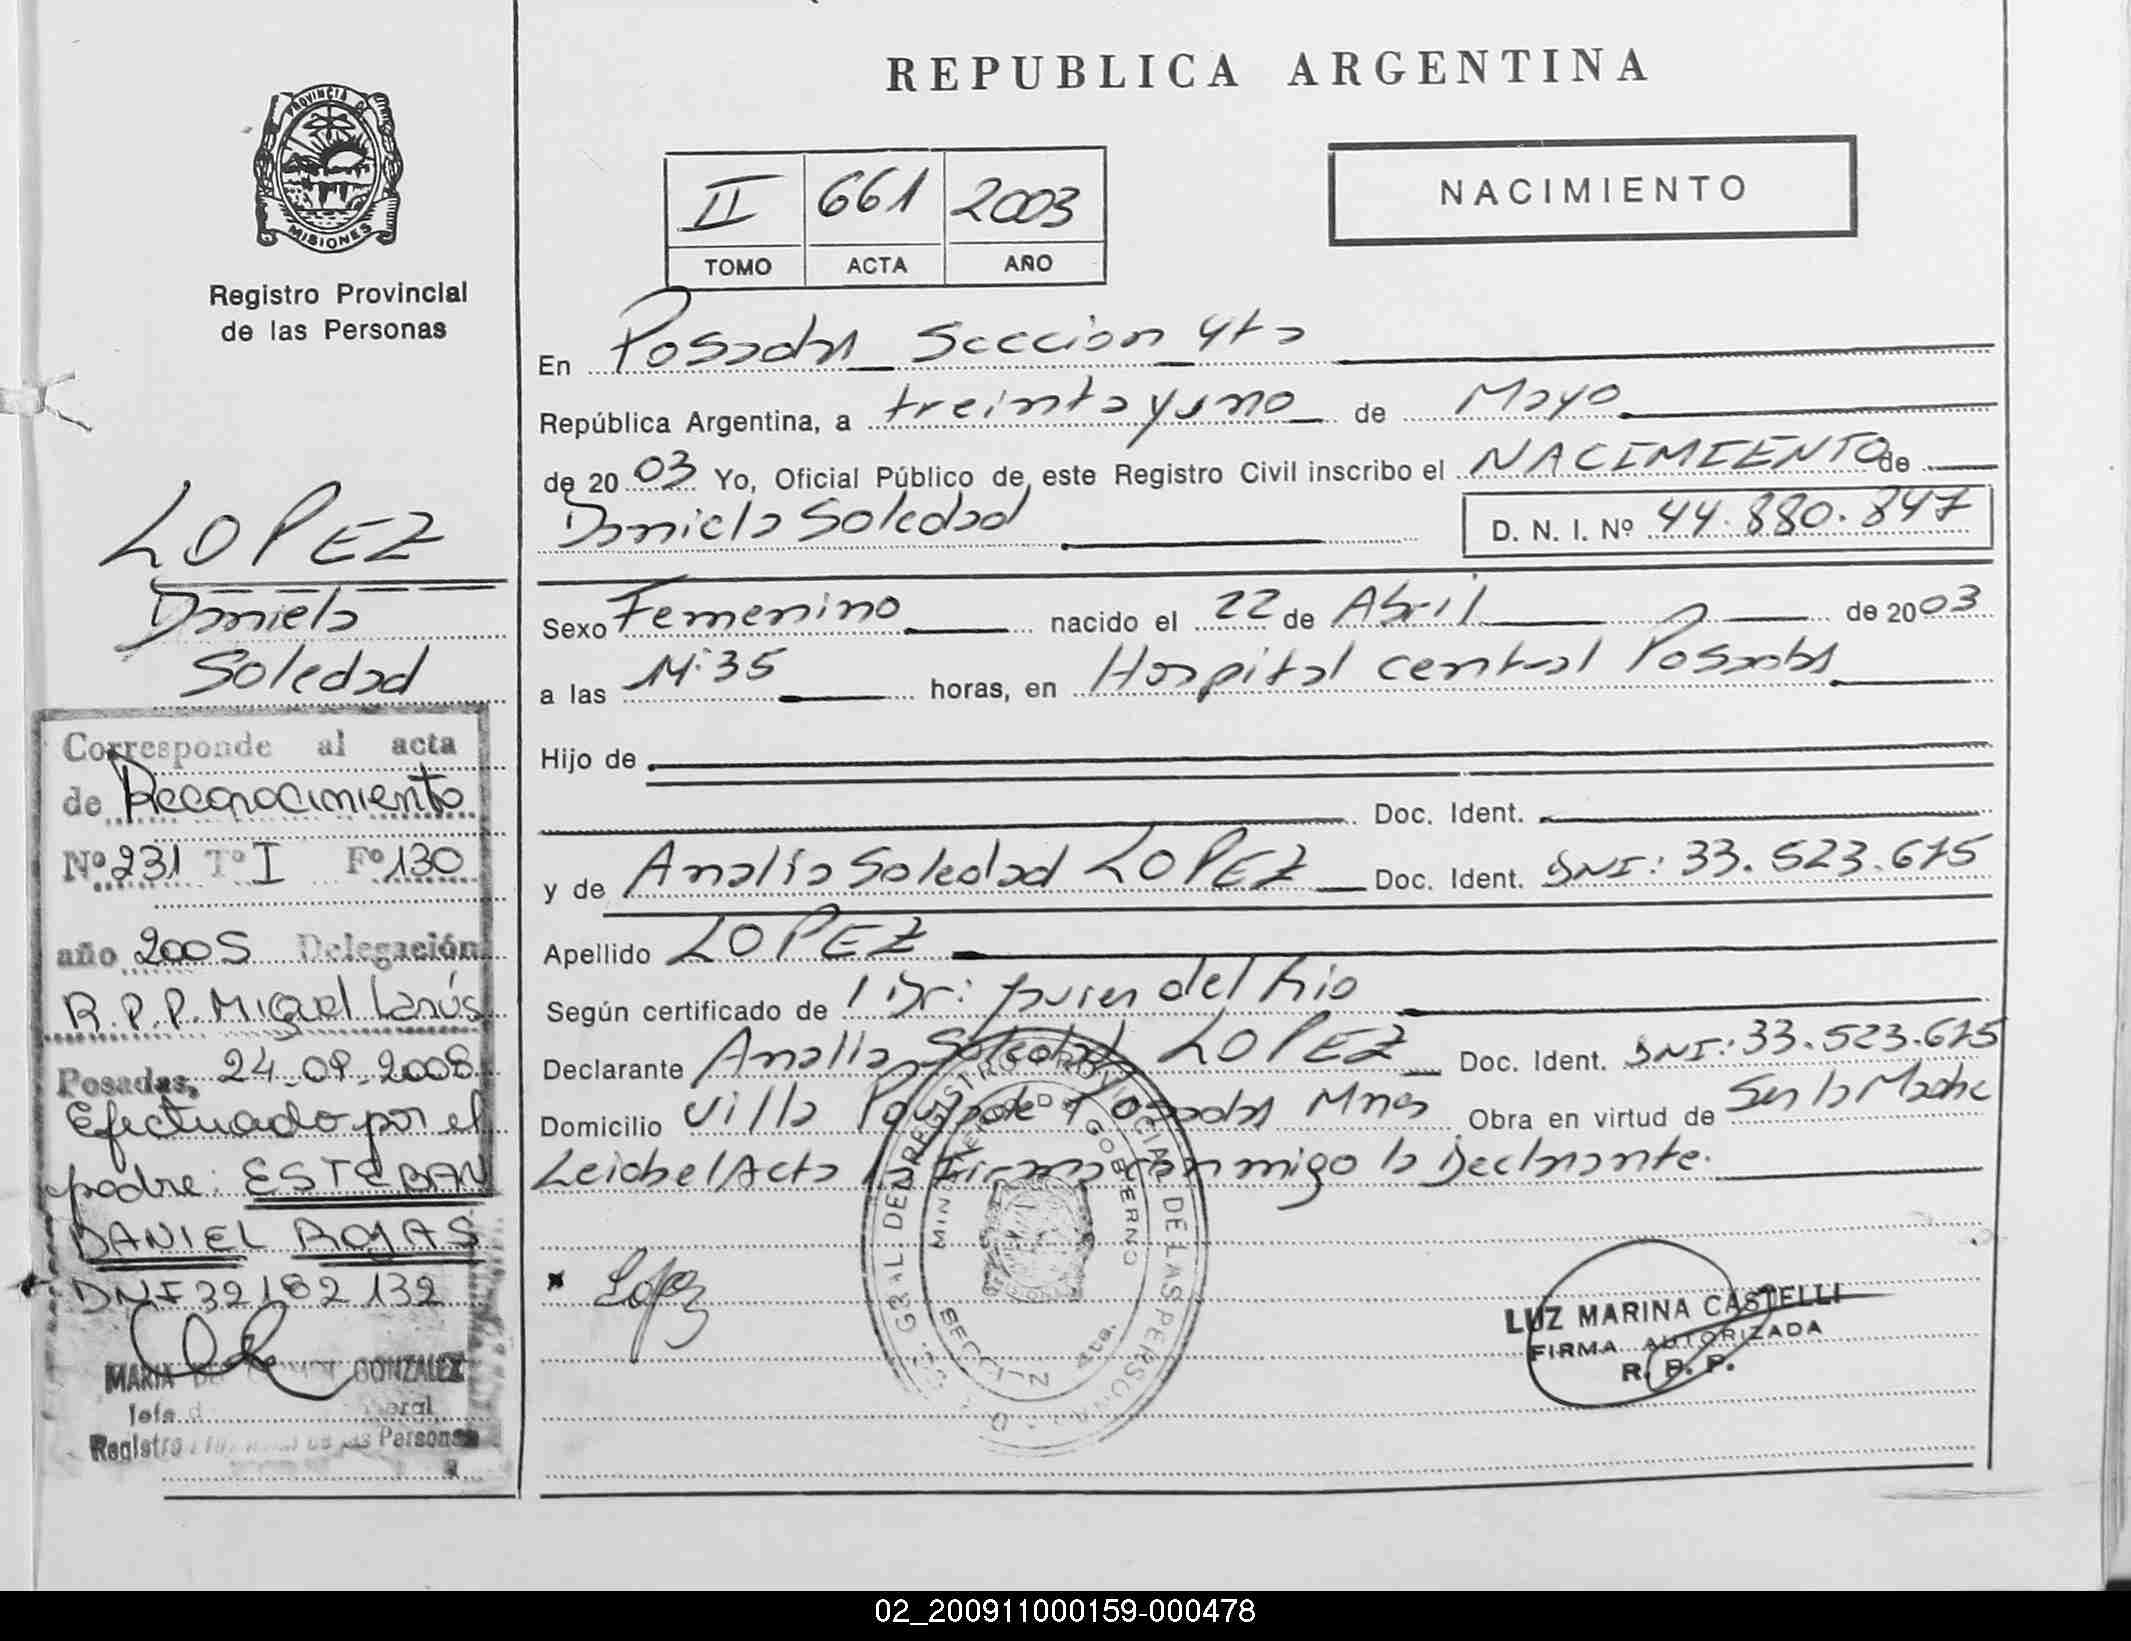 REPUBLICA ARGENTINA
PROVINCIA DE
MISIONES
Registro Provincial
de las Personas
II 661 2003
TOMO ACTA AÑO
NACIMIENTO
En Posadas Seccion 4ta
República Argentina, a treinta y uno de Mayo
de 2003 Yo, Oficial Público de este Registro Civil inscribo el NACIMIENTO de
Daniela Soledad D. N. I. Nº 44.880.847
Sexo Femenino nacido el 22 de Abril de 2003
a las 11:35 horas, en Hospital central Posadas
Hijo de
Doc. Ident.
y de Analia Soledad LOPEZ Doc. Ident. DNI: 33.523.675
Apellido LOPEZ
Según certificado de Dr: del Rio
Declarante Analia Soledad LOPEZ Doc. Ident. DNI: 33.523.675
Domicilio Villa Posadas Mnes Obra en virtud de Ser la Madre
Leida el Acta la Firma conmigo la Declarante.
Lopez
LUZ MARINA CASTELLI
FIRMA AUTORIZADA
R. P. P.
LOPEZ
Daniela
Soledad
Corresponde al acta
de Reconocimiento
Nº 231 Tº I Fº 130
año 2005 Delegación
R.P.P. Miguel Lanús
Posadas, 24-09-2008
Efectuado por el
padre: ESTEBAN
DANIEL ROJAS
DNI 32182132
MARIA GONZALEZ
Registro de las Personas
REGISTRO PROVINCIAL DE LAS PERSONAS
MINISTERIO DE GOBIERNO
02_200911000159-000478